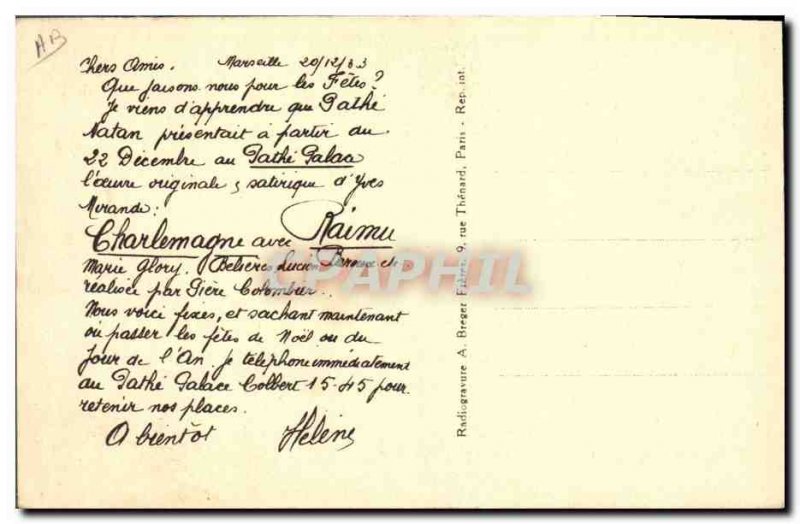 AB
Chers Amis. Marseille 20/12/33
Que faisons nous pour les Fêtes?
Je viens d'apprendre que Pathé
Natan présentait à partir du
22 Décembre au Pathé Palace
l'œuvre originale & satirique d'Yves
Mirande:
Charlemagne avec Raimu
Marie Glory. Belières Lucien Baroux et
réalisée par Pière Colombier.
Nous voici fixes, et sachant maintenant
où passer les fêtes de Noël ou du
Jour de l'An. Je téléphone immédiatement
au Pathé Palace Colbert 15-45 pour
retenir nos places.
A bientôt Hélène
Radiogravure A. Breger Frères, 9, rue Thénard, Paris - Rep. int.
CPAPHIL